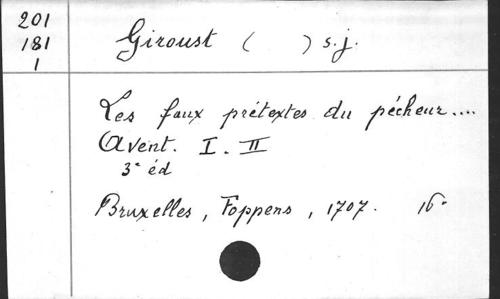 201
181
1
Giroust (       ) s.j.
Les faux prétextes du pécheur....
Avent. I. II
3ᵉ éd
Bruxelles, Foppens, 1707. 16°